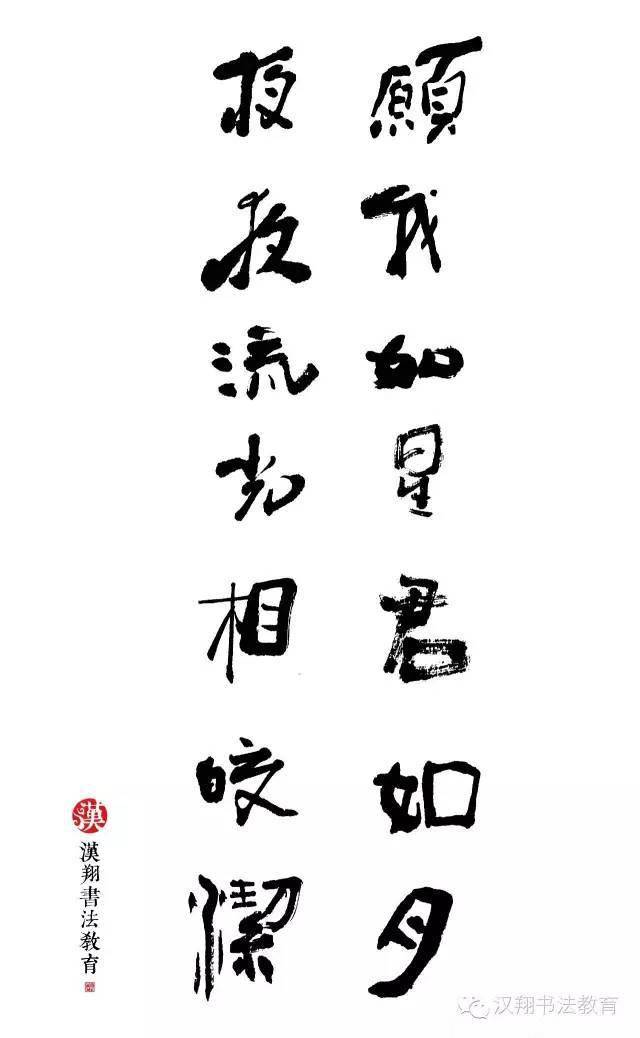 願我如星君如月
夜夜流光相皎潔
漢
漢翔書法教育
汉翔书法教育